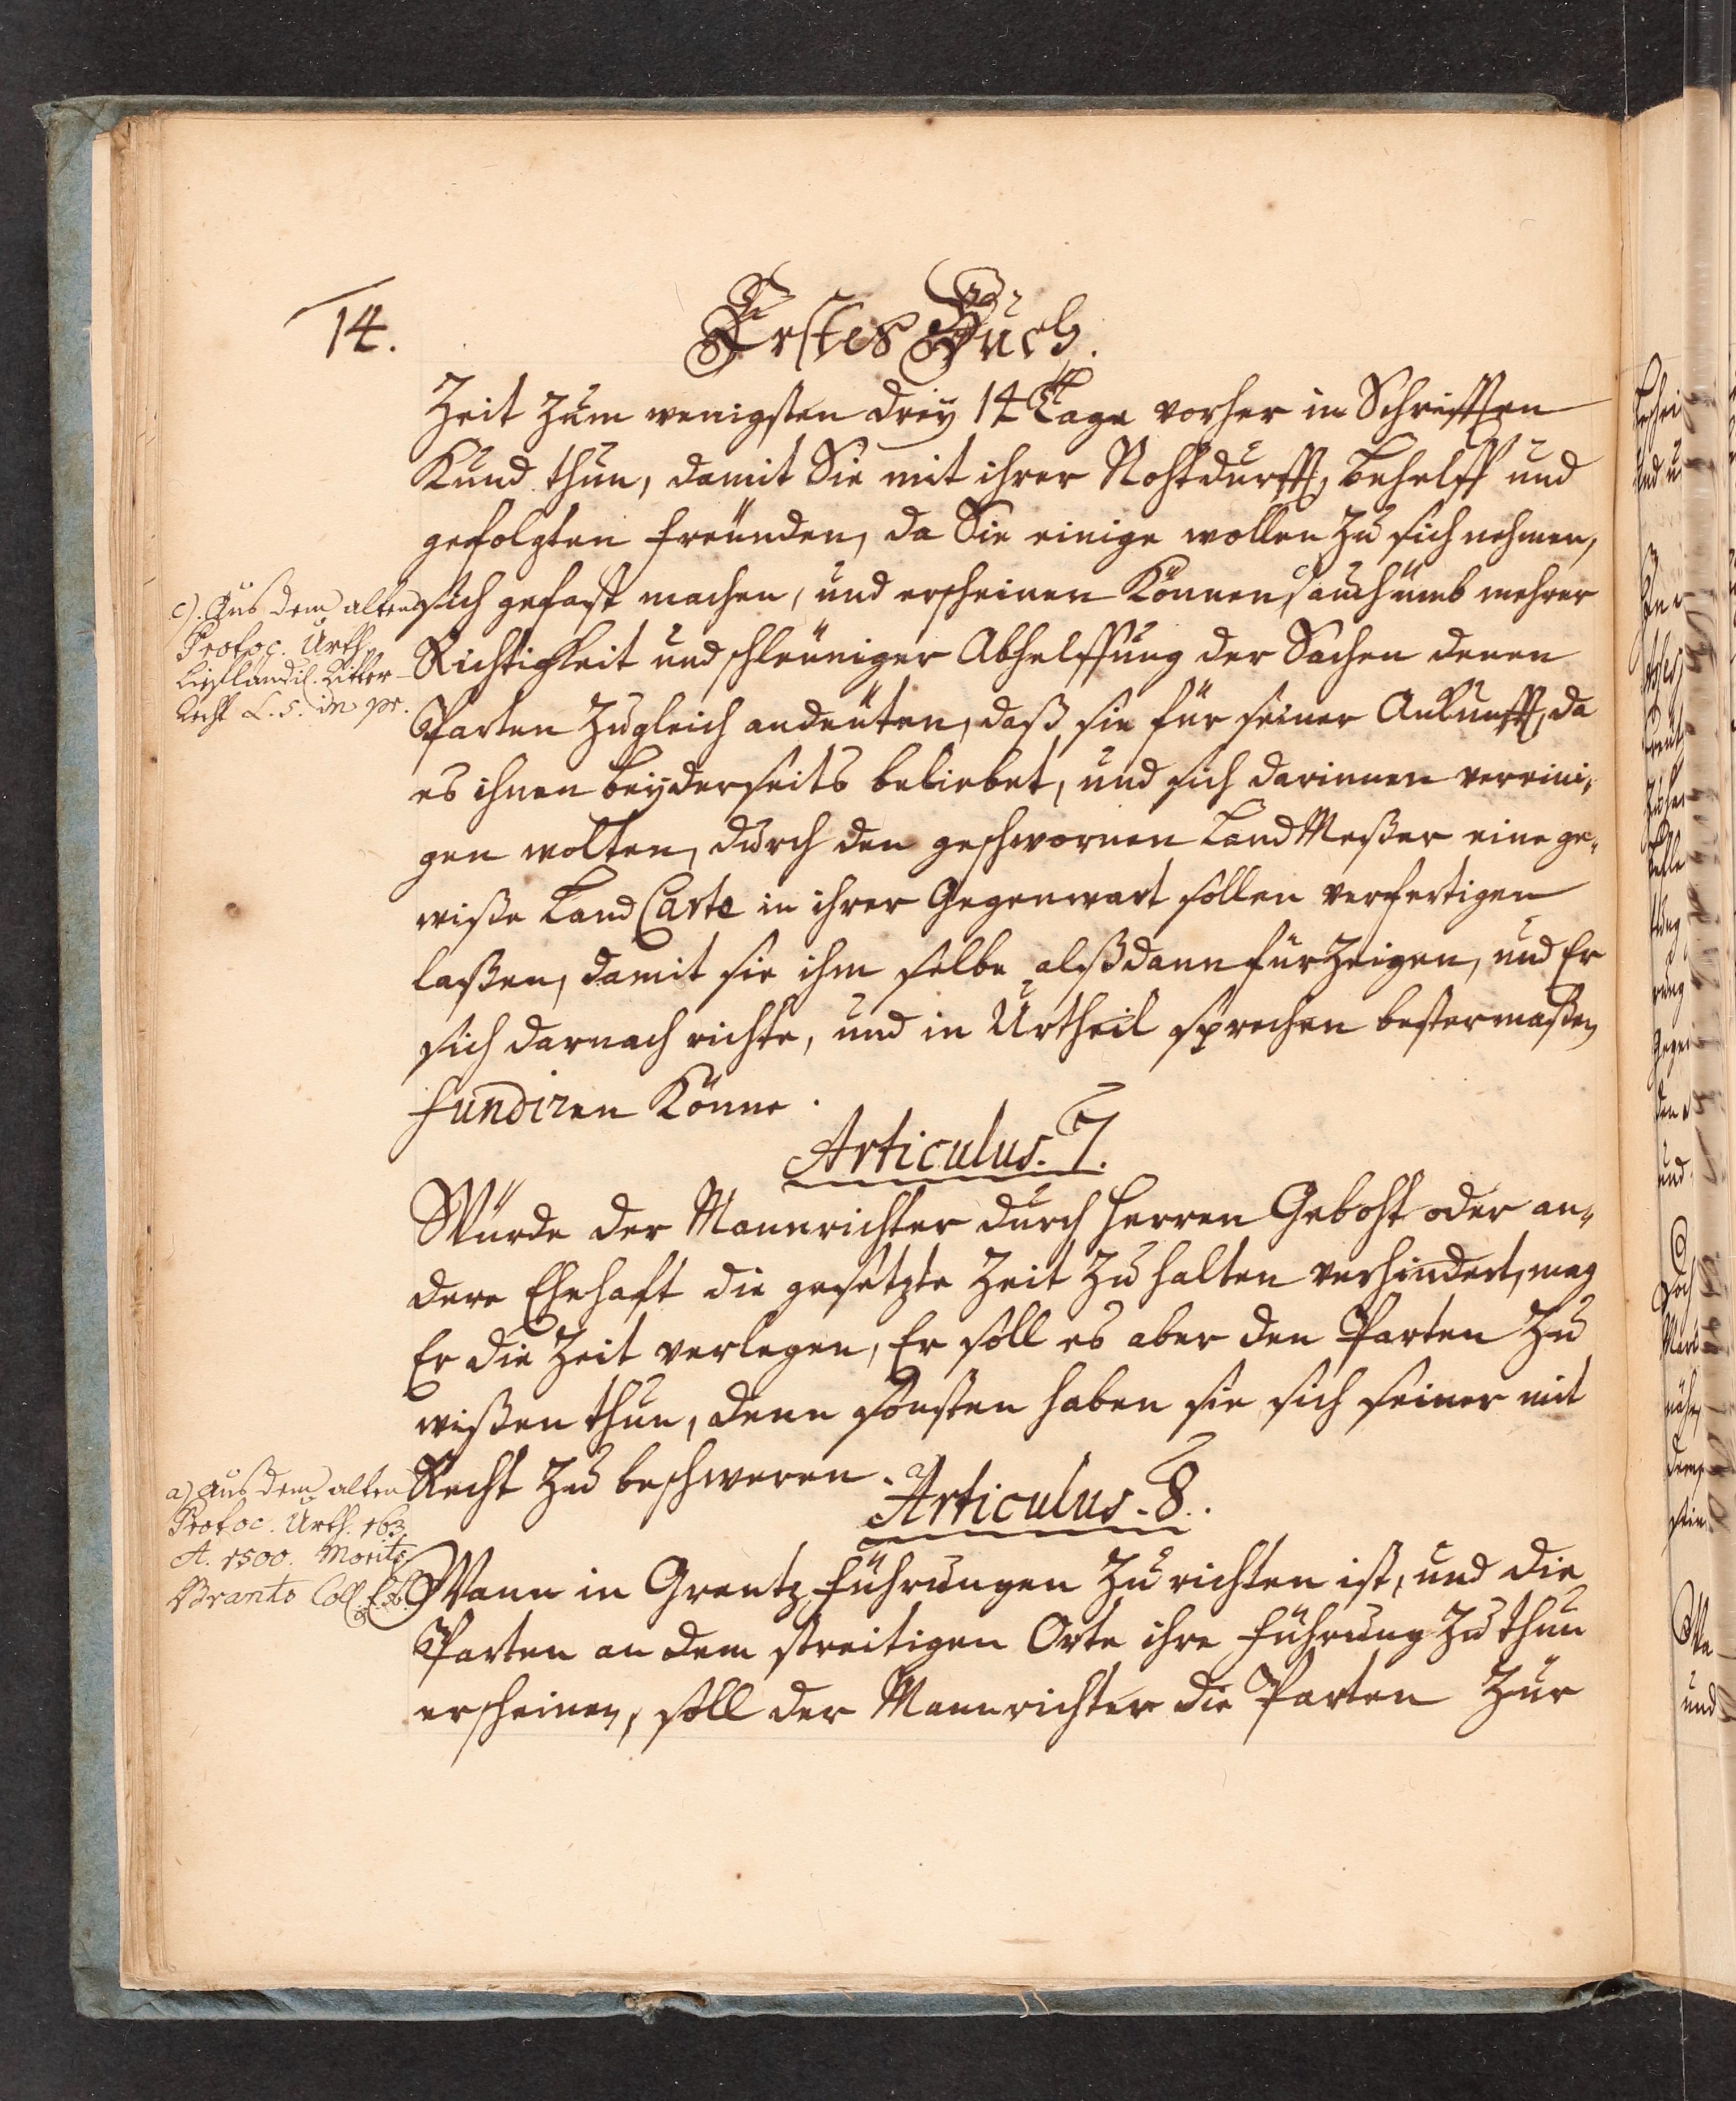 14.
Erstes Buch.
Zeit zum wenigsten drey 14 Tage vorher in Schrifften
Kund thun, damit Sie mit ihrer Nohtdurfft, behelff und
gefolgten freünden, da Sie einige wollen zu sich nehmen,
sich gefast machen, und erscheinen Können, c) auch umb mehrer
Richtigkeit und schleuniger Abhelffung der Sachen denen
Parten zugleich andeüten, daß sie für seiner Ankunfft, da
es ihnen beyderseits beliebet, und sich darinnen vereini-
gen wolten, durch den geschwornen Land Meßer eine ge-
wiße Land Carte in ihrer Gegenwart sollen verfertigen
laßen, damit sie ihm selbe alßdann fürzeigen, und Er
sich darnach richte, und in Urtheil sprechen bestermaßen
fundiren Könne.
c). Aus dem alten
Protoc. Urth.
Liefländis. Ritter-
Recht L. 5. in pr.
Articulus. 7.
Würde der Mannrichter durch Herren Geboht oder an-
dere Ehehaft die gesetzte Zeit zu halten verhindert, mag
Er die Zeit verlegen, Er soll es aber den Parten zu
wißen thun, denn sonsten haben sie sich seiner mit
Recht zu beschweren. a)
a) aus dem alten
Protoc. Urth. 163.
A. 1500. Morits
Brants Coll.
Articulus. 8.
Wann in Grentz führungen zu richten ist, und die
Parten an dem streitigen Orte ihre führung zu thun
erscheinen, soll der Mannrichter die Parten zur